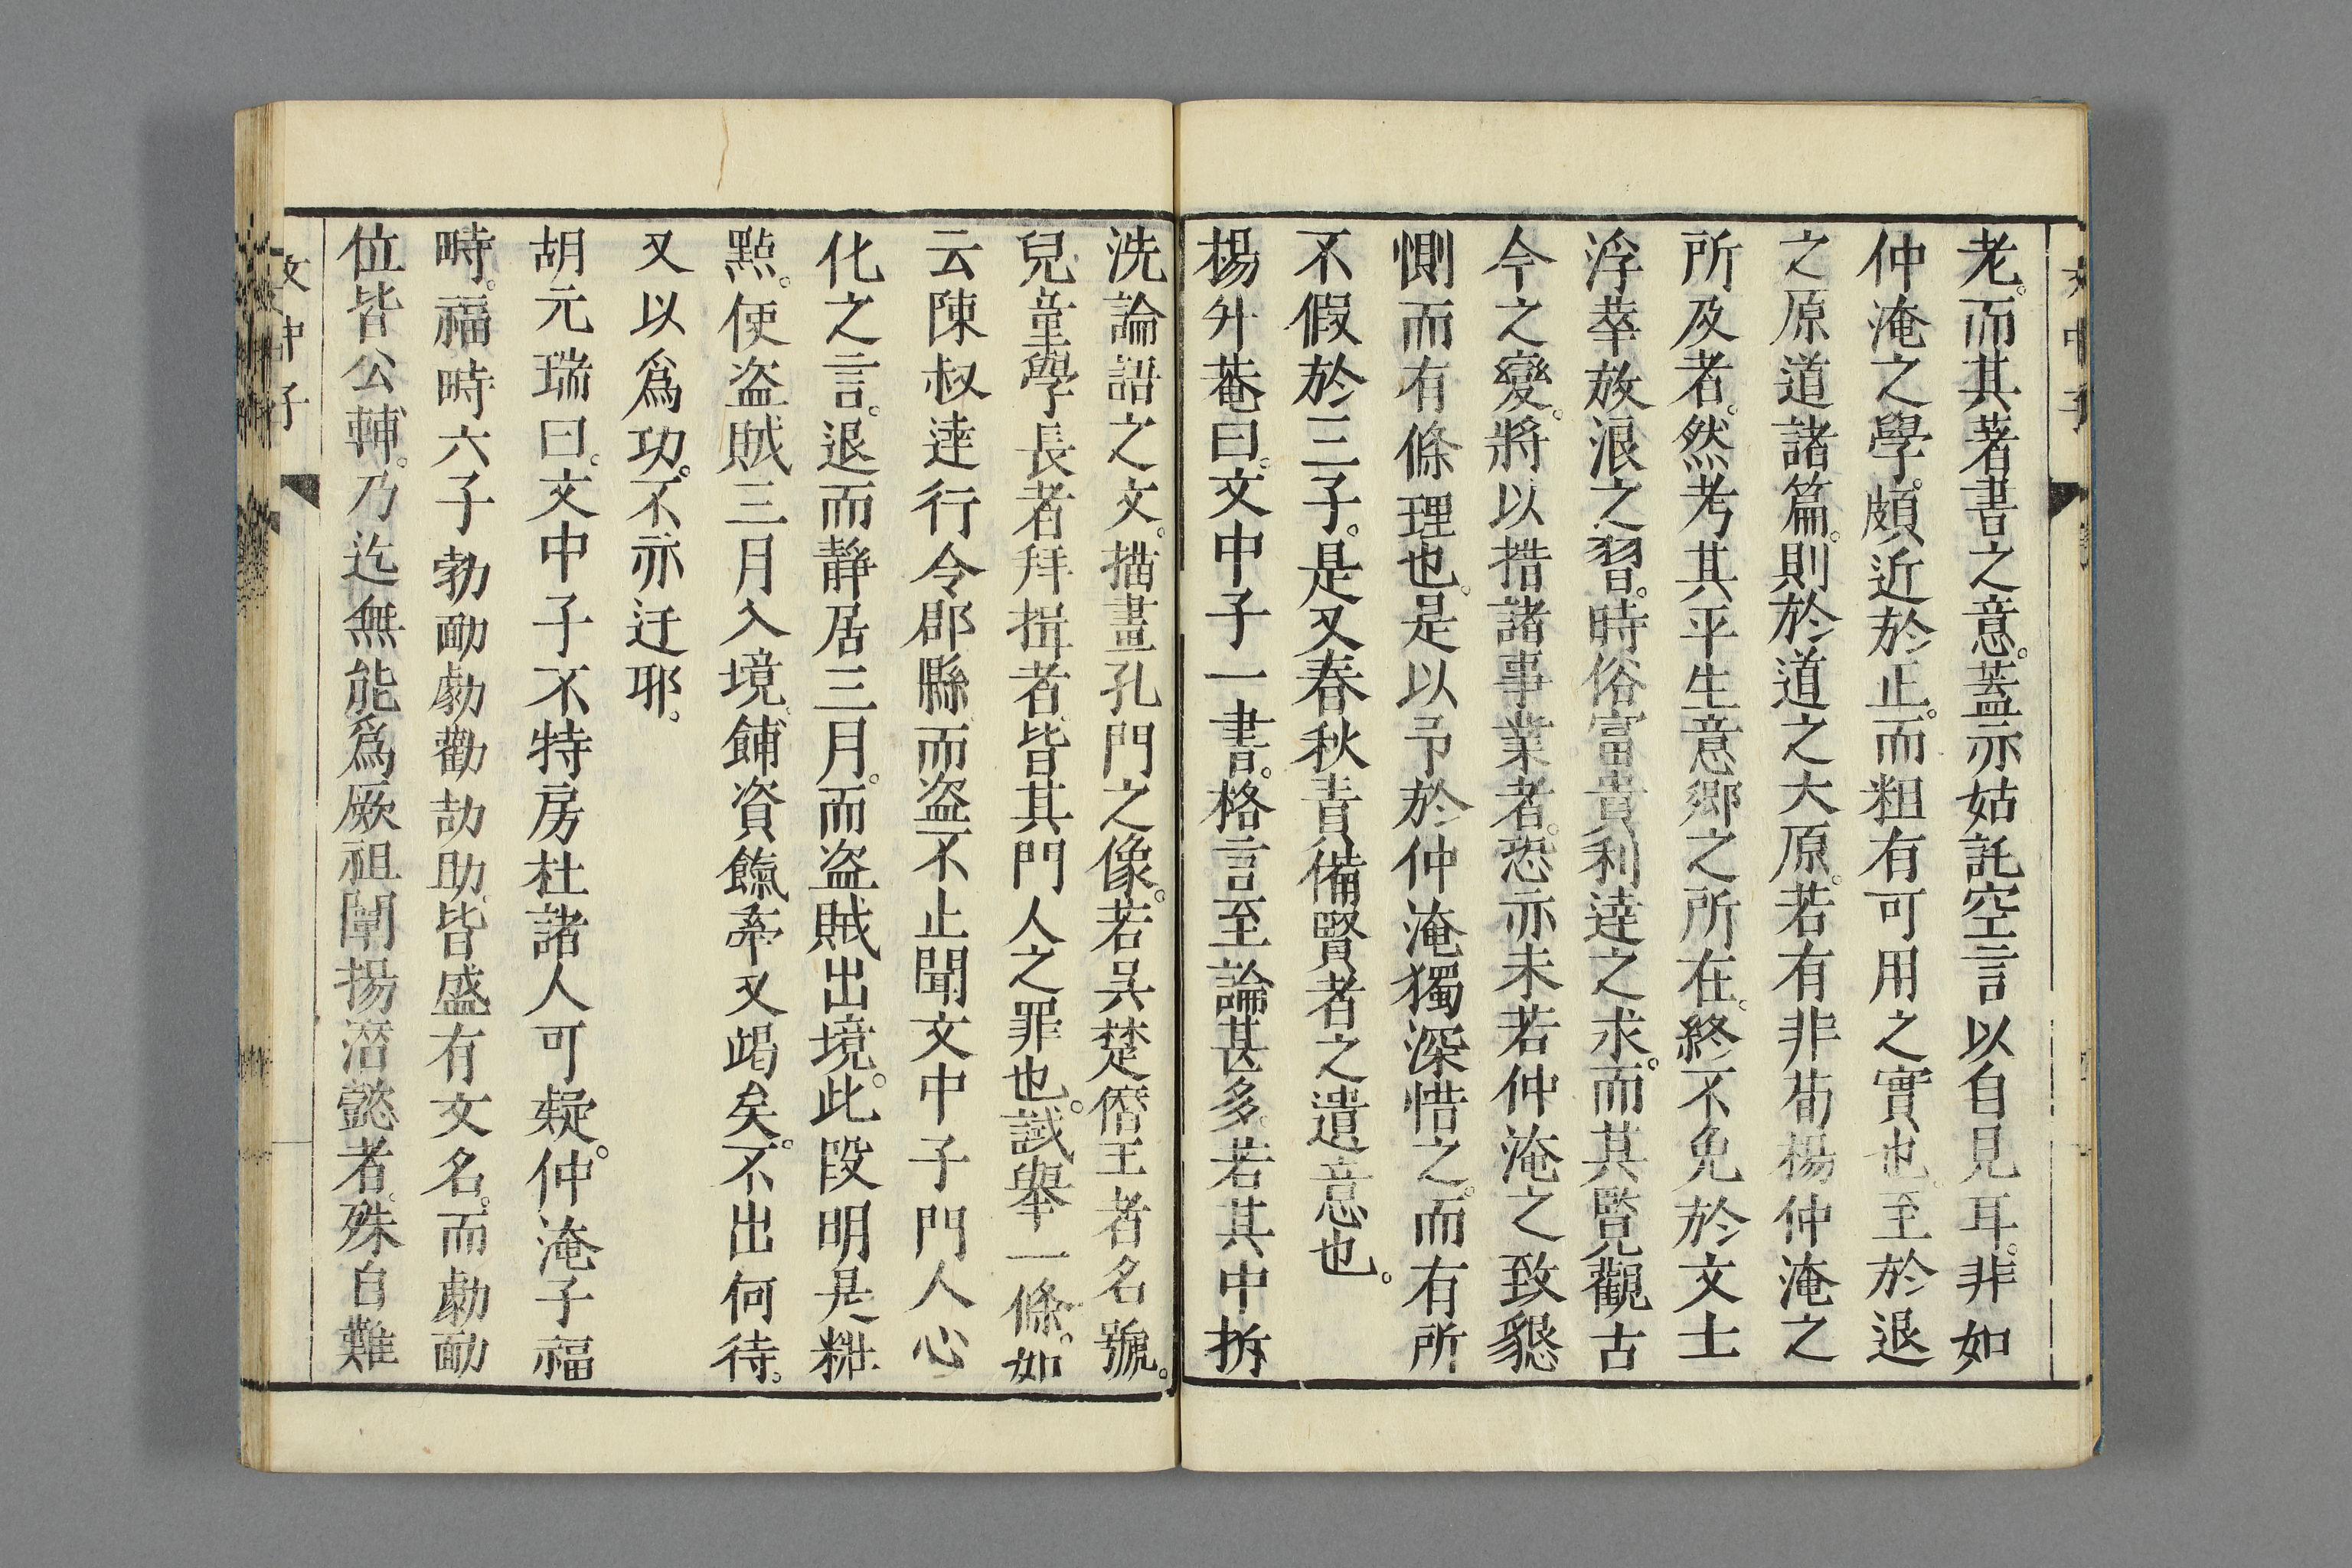 老。而其著書之意。蓋亦姑託空言以自見耳。非如
仲淹之學。頗近於正。而粗有可用之實也。至於退
之原道諸篇。則於道之大原。若有非荀楊仲淹之
所及者。然考其平生意鄉之所在。終不免於文士
浮華放浪之習。時俗富貴利達之求。而其覽觀古
今之變。將以措諸事業者。恐亦未若仲淹之致懇
惻而有條理也。是以予於仲淹獨深惜之。而有所
不假於三子。是又春秋責備賢者之遺意也。
楊升菴曰。文中子一書。格言至論甚多。若其中拆
洗論語之文。描畫孔門之像。若吳楚僭王者名號。
兒童學長者拜揖者。皆其門人之罪也。試舉一條。如
云陳叔達行令郡縣而盜不止聞文中子門人心
化之言。退而靜居三月。而盜賊出境。此段明是粧
點。便盜賊三月入境。餔資餼牽又竭矣。不出何待。
又以爲功。不亦迂耶。
胡元瑞曰。文中子不特房杜諸人可疑。仲淹子福
畤。福畤六子勃勔勮勸劼助。皆盛有文名。而勮勔
位皆公輔。乃迄無能爲厥祖闡揚濳懿者。殊自難
文中子